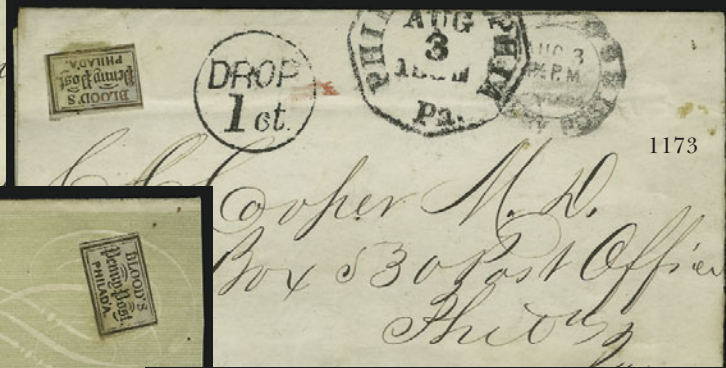 BLOOD'S
Penny Post.
PHILAD'A.
DROP
1 ct.
PHIL
AUG
3
Pa.
AUG 3
P.M
1173
Cooper M. D.
Box 530 Post Office
BLOOD'S
Penny Post.
PHILAD'A.